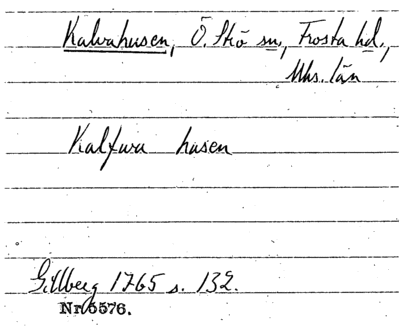 Kalvahusen, Ö. Skö sn, Frosta hd.,
Mhs. län
Kalfwa husen
Gillberg 1765 s. 132.
Nr 5576.